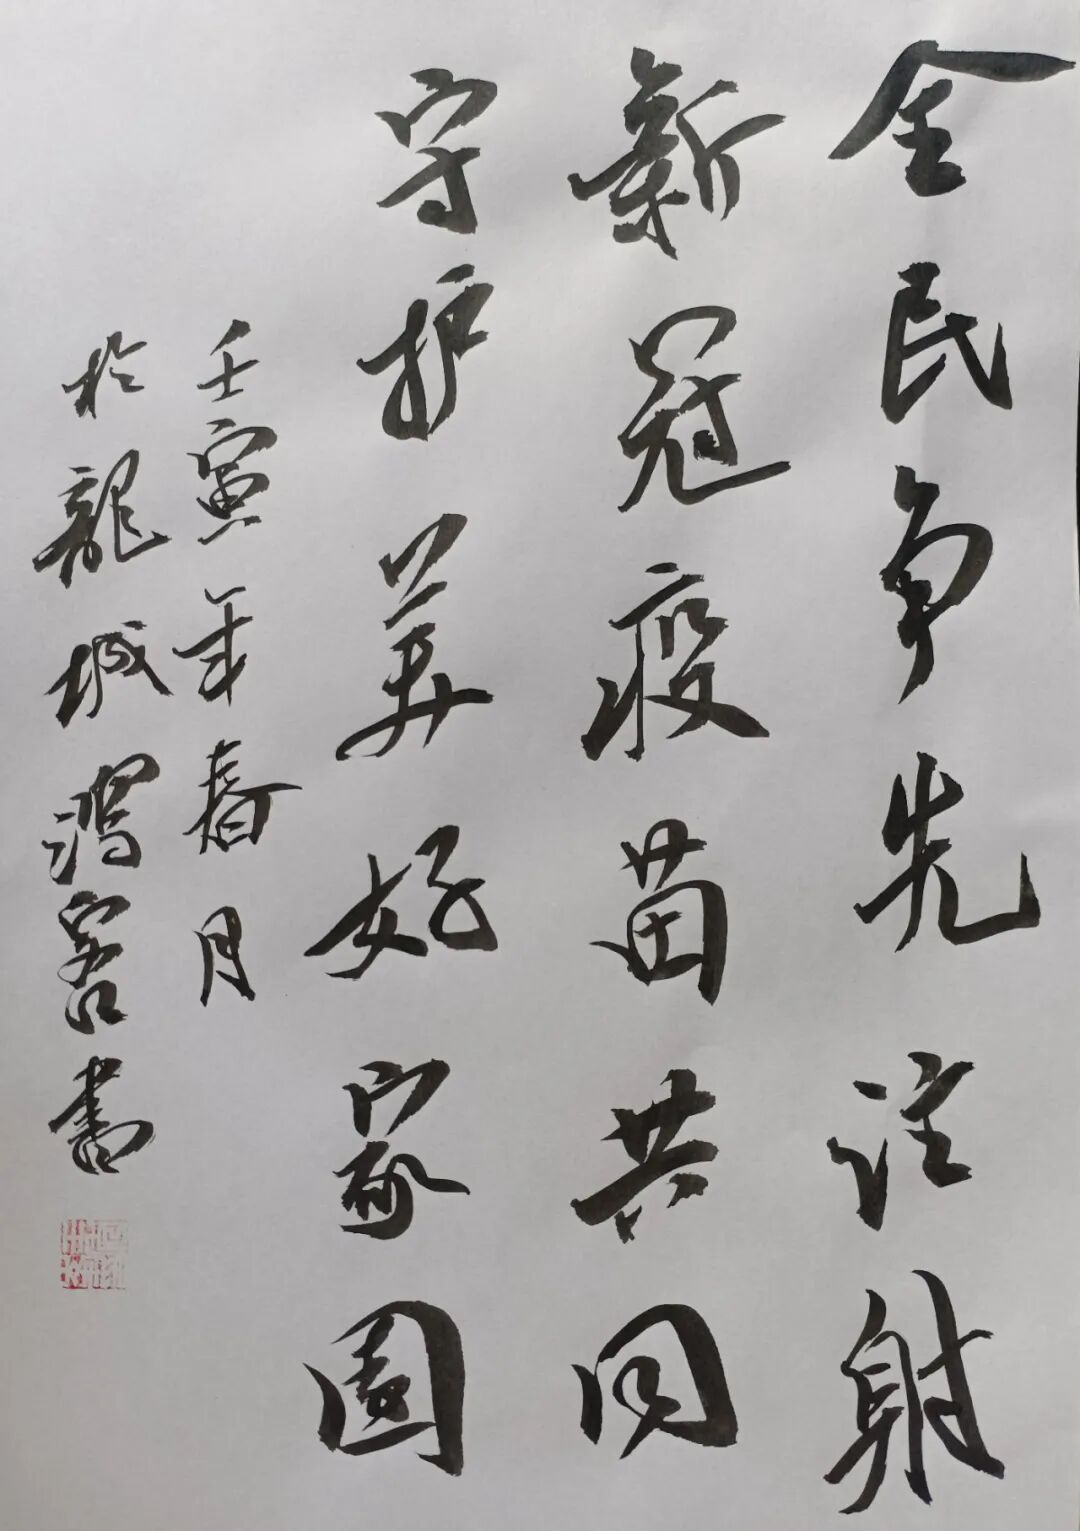 全民争先註射
新冠疫苗共同
守护美好家園
壬寅年春月
於龍城鴻客書